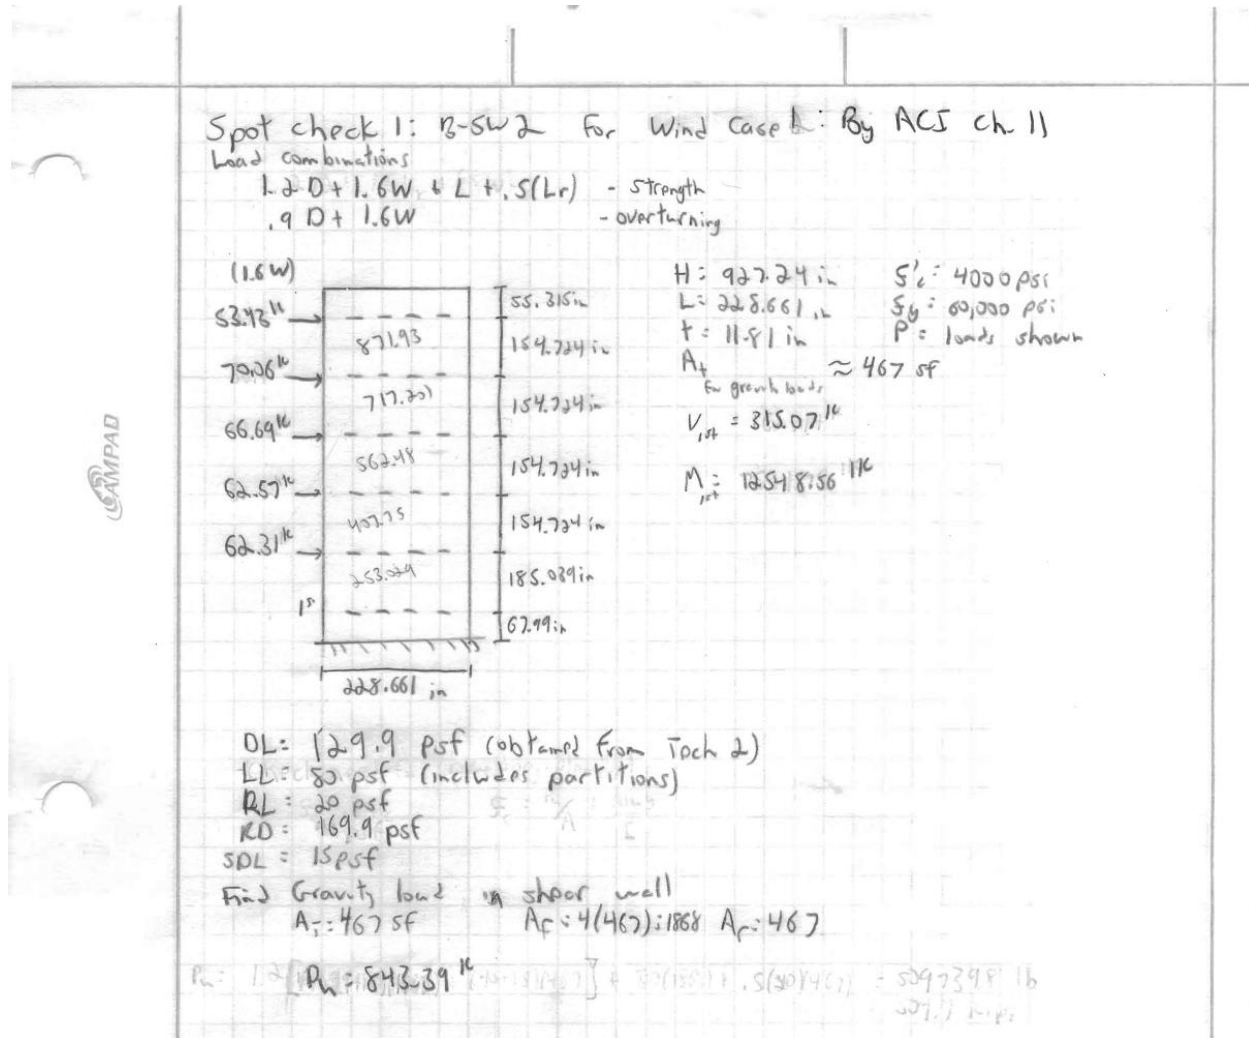 Spot check 1: B-SW 2 For Wind Case 1: By ACI ch. 11
Load combinations
1.2 D + 1.6W + L + .5(Lr) - strength
.9 D + 1.6W - overturning
(1.6W)
53.43ᵏ
70.06ᵏ
66.69ᵏ
62.57ᵏ
62.31ᵏ
1st
871.93
717.201
562.48
407.75
253.029
55.315in
154.724 in
154.724 in
154.724 in
154.724 in
185.039in
67.99in
228.661 in
H = 927.24 in
L = 228.661 in
t = 11.81 in
At ≈ 467 sf
For gravity loads
V1st = 315.07ᵏ
M1st = 12548.56 'ᵏ
f'c = 4000 psi
fy = 60,000 psi
P = loads shown
CAMPAD
DL = 129.9 psf (obtained from Tech 2)
LL = 80 psf (includes partitions)
RL = 20 psf
RD = 169.9 psf
SDL = 15psf
Find Gravity load in shear wall
AT = 467 sf AF = 4(467) = 1868 Ar = 467
Pu = 843.39ᵏ